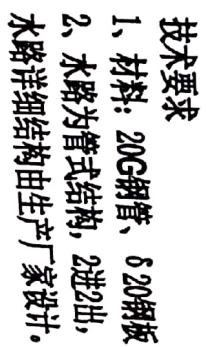 技术要求
1、材料：20G钢管、δ20钢板
2、水路为管式结构，2进2出，
水路详细结构由生产厂家设计。